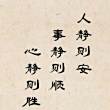 人静则安
事静则顺
心静则胜